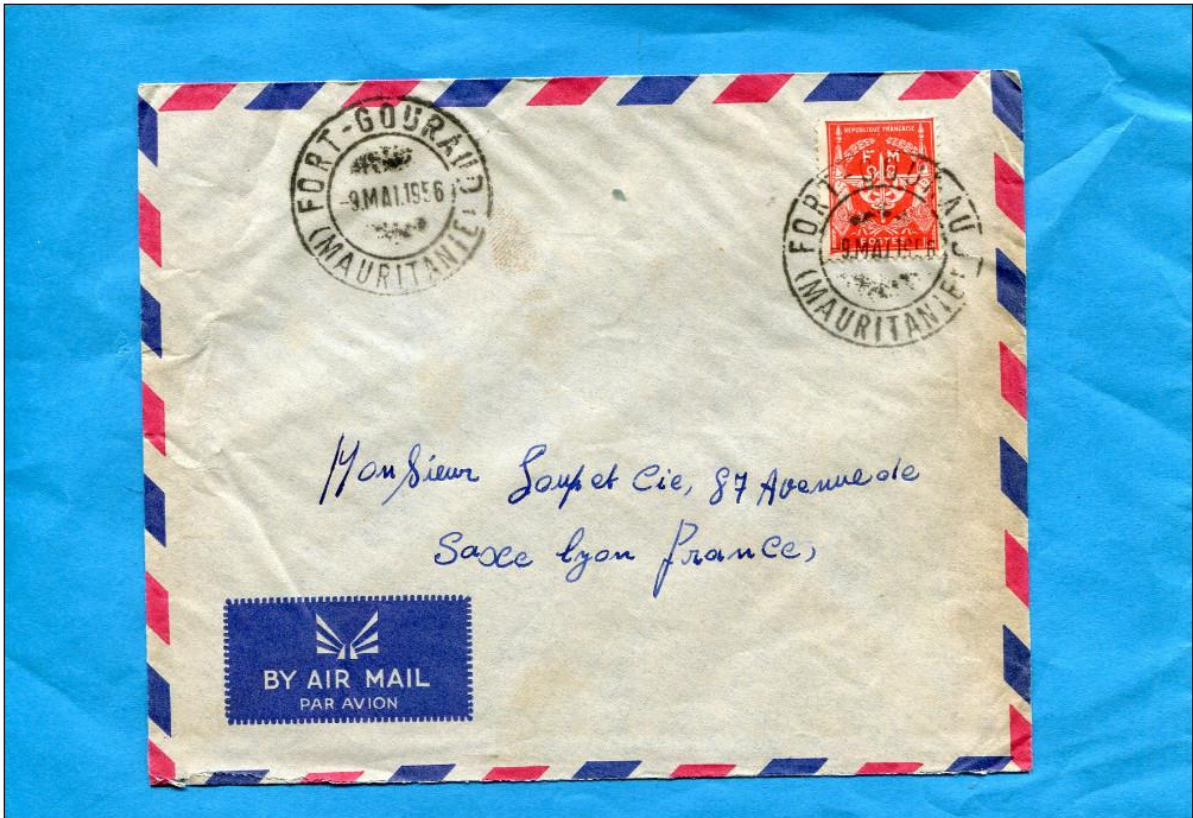 FORT-GOURAUD
-9.MAI.1956
(MAURITANIE)
REPUBLIQUE FRANÇAISE
F M
POSTES
FORT-GOURAUD
-9.MAI.1956
(MAURITANIE)
Monsieur Loup et Cie, 87 Avenue de
Saxe Lyon France,
BY AIR MAIL
PAR AVION